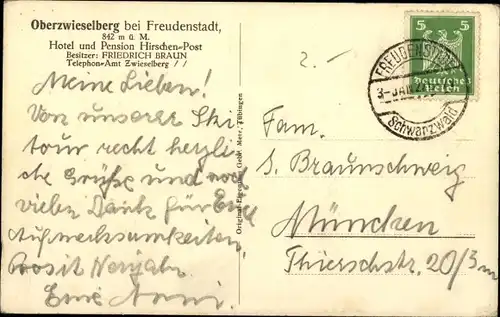 Oberzwieselberg bei Freudenstadt,
842 m ü. M.
Hotel und Pension Hirschen=Post
Besitzer: FRIEDRICH BRAUN
Telephon=Amt Zwieselberg
Meine Lieben!
Von unserer Ski
tour recht herzli
che Grüße und noch
vielen Dank für Eure
Aufmerksamkeiten.
Prosit Neujahr
Eure Anni.
Gebr. Metz, Tübingen
2.-
5 5
Deutsches
Reich
FREUDENSTADT
3-JAN
Schwarzwald
Fam.
S. Braunschweig
München
Thierschstr. 20/3